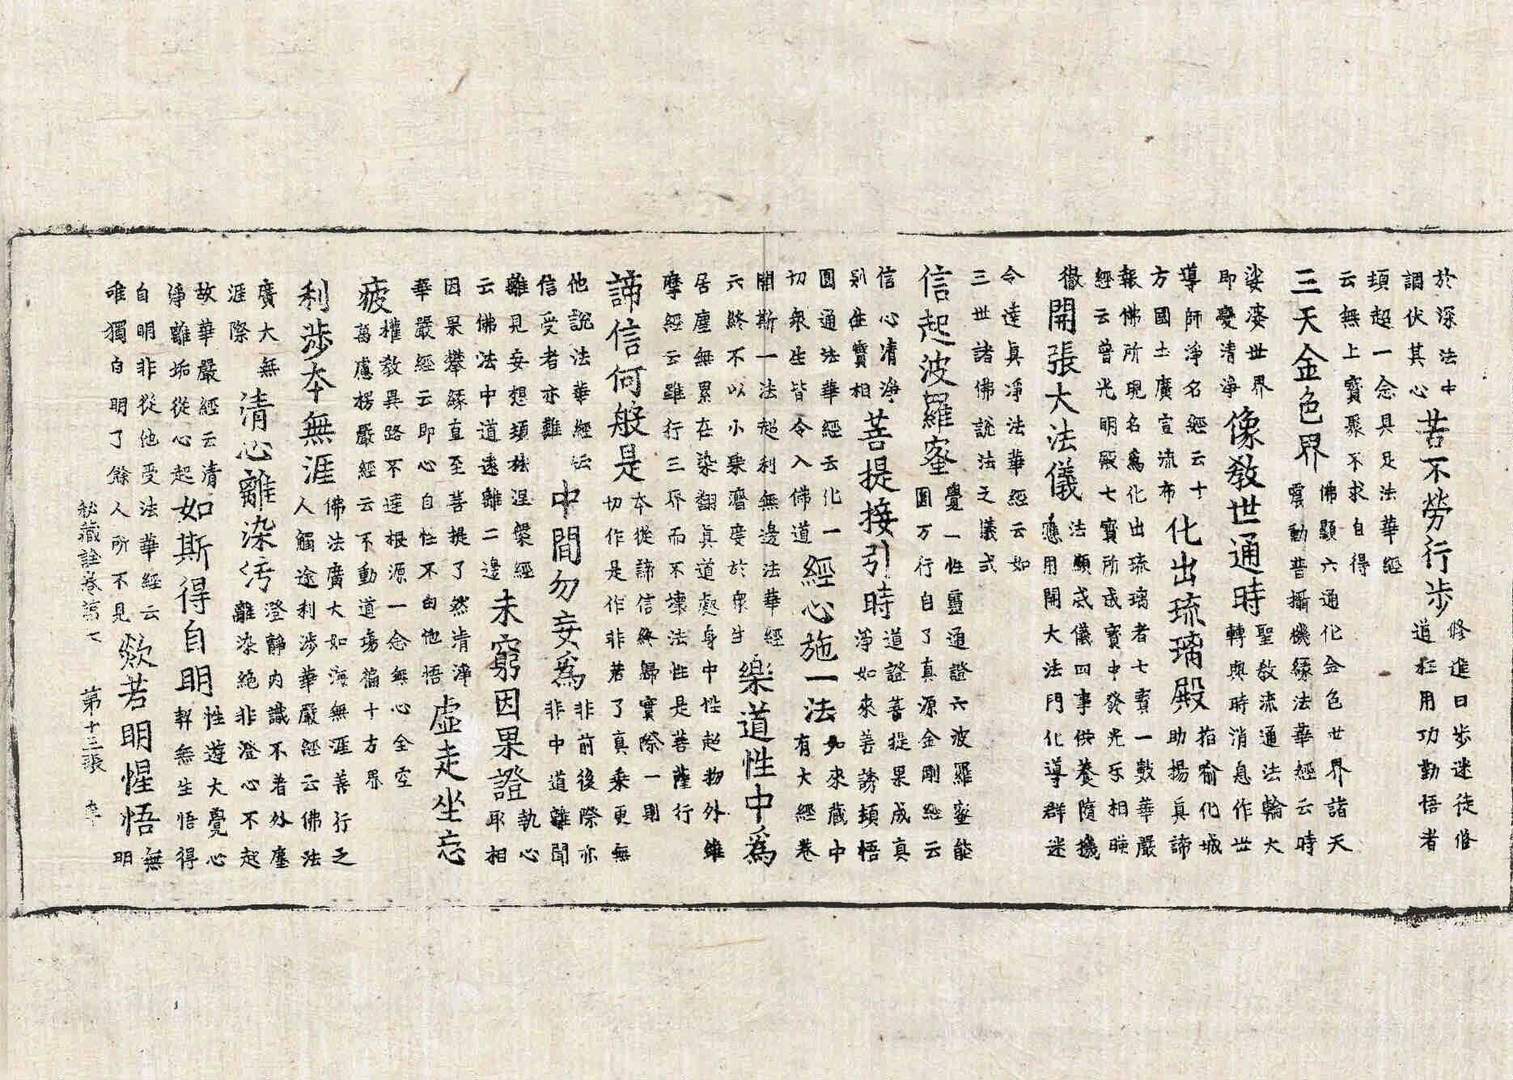 於深法中
調伏其心
苦不勞行步
修進日步迷徒修
道枉用功勤悟者
頃超一念具足法華經
云無上寶聚不求自得
三天金色界
佛顯六通化金色世界諸天
震動普攝機緣法華經云時
娑婆世界
即變清淨
像教世通時
聖教流通法輪大
轉與時消息作世
導師淨名經云十
方國土廣宣流布
化出琉璃殿
指喻化城
助揚真諦
報佛所現名爲化出琉璃者七寶一數華嚴
經云普光明殿七寶所成寶中發光示相暎
徹
開張大法儀
法顯威儀四事供養隨機
應用開大法門化導群迷
令達真淨法華經云如
三世諸佛說法之儀式
信起波羅蜜
覺一性靈通證六波羅蜜能
圓万行自了真源金剛經云
信心清淨
則生實相
菩提接引時
道證菩提果成真
淨如來善誘頓悟
圓通法華經云化一
切衆生皆令入佛道
經心施一法
如來藏中
有大經卷
開斯一法起利無邊法華經
云終不以小乘濟度於衆生
樂道性中爲
居塵無累在染翻真道處身中性起物外維
摩經云雖行三界而不壞法性是菩薩行
諦信何般是
本從諦信終歸實際一則
切作是作非若了真乘更無
他說法華經云
信受者亦難
中間勿妄爲
非前後際亦
非中道離聞
離見妄想頓祛涅槃經
云佛法中道遠離二邊
未窮因果證
執心
取相
因果攀緣直至菩提了然清淨
華嚴經云即心自性不由他悟
虛走坐忘
疲
權教異路不達根源一念無心全空
萬慮楞嚴經云不動道場徧十方界
利涉本無涯
佛法廣大如海無涯善行之
人觸途利涉華嚴經云佛法
廣大無
涯際
清心離染污
澄靜內識不着外塵
離染絕非澄心不起
故華嚴經云清
淨離垢從心起
如斯得自明
性遊大覺心
幹無生悟得
自明非從他受法華經云
唯獨自明了餘人所不見
欻若明惺悟
無
明
秘藏詮卷第七 第十三張